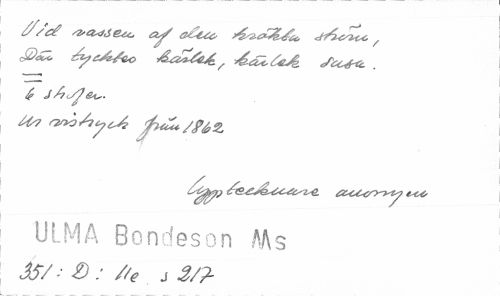 Vid vassen af den krökta strön,
Där tycktes kärlek, kärlek susa.
6 strofer.
Ur vistryck från 1862
Upptecknare anonym
ULMA Bondeson Ms
351: D: 11e s 217